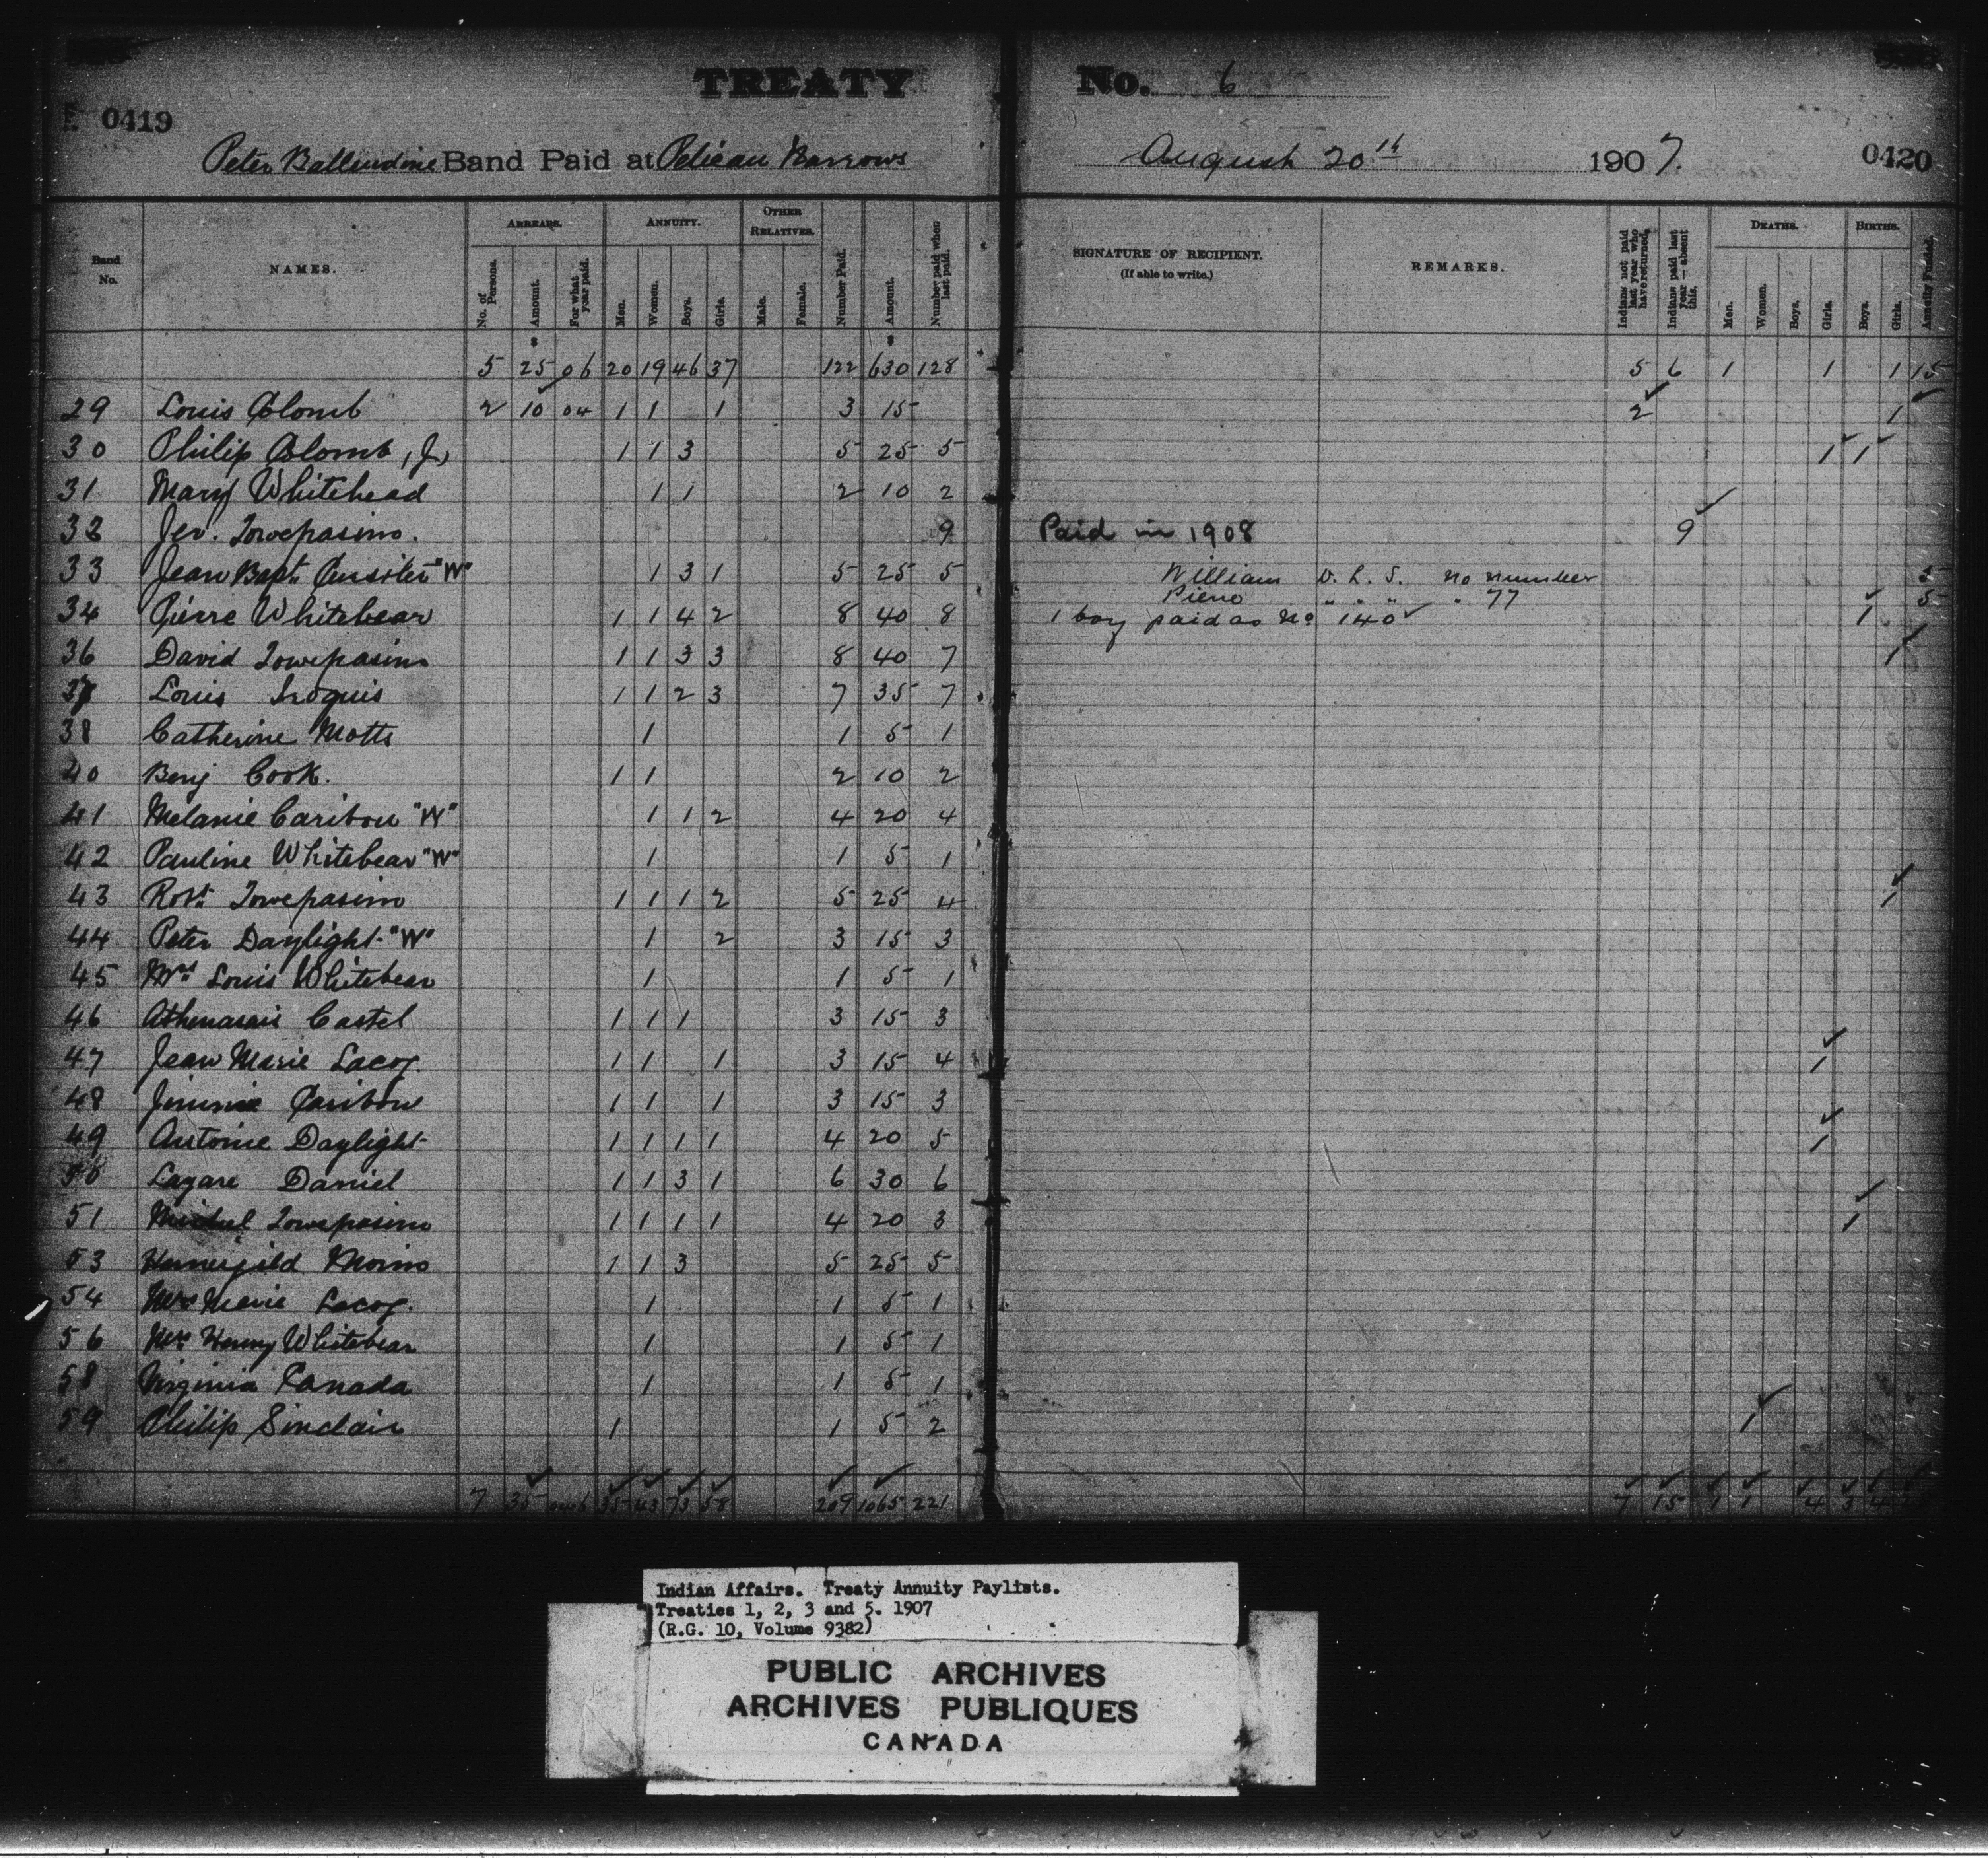 TREATY No. 6
0419
Peter Ballendine Band Paid at Pelican Narrows August 20th 1907. 0420
Band No. NAMES. ARREARS. ANNUITY. OTHER RELATIVES. Number Paid. Amount. Number paid when last paid. SIGNATURE OF RECIPIENT. (If able to write.) REMARKS. Indians not paid last year who have returned. Indians paid last year — absent this. DEATHS. BIRTHS. Annuity Funded.
No. of Persons. Amount. For what year paid. Men. Women. Boys. Girls. Male. Female. Men. Women. Boys. Girls. Boys. Girls.
5 25 06 20 19 46 37 122 630 128 5 6 1 1 1 15
29 Louis Colomb 2 10 04 1 1 1 3 15 2 1
30 Philip Colomb, Jr 1 1 3 5 25 5 1 1
31 Mary Whitehead 1 1 2 10 2
32 Jer. Towepasino. 9 Paid in 1908 9
33 Jean Bapt. "W" 1 3 1 5 25 5 William D. L. S. no number 5
Pierre " " " " 77 5
34 Pierre Whitebear 1 1 4 2 8 40 8 1 boy paid as No 140 1
36 David Towepasino 1 1 3 3 8 40 7 1
37 Louis Iroquis 1 1 2 3 7 35 7
38 Catherine Motts 1 1 5 1
40 Benj Cook. 1 1 2 10 2
41 Melanie Caribou "W" 1 1 2 4 20 4
42 Pauline Whitebear "W" 1 1 5 1
43 Robt. Towepasino 1 1 1 2 5 25 4 1
44 Peter Daylight "W" 1 2 3 15 3
45 Mrs Louis Whitebear 1 1 5 1
46 Athenasais Castel 1 1 1 3 15 3
47 Jean Marie Lacog. 1 1 1 3 15 4 1
48 Jimmie Caribou 1 1 1 3 15 3
49 Antoine Daylight 1 1 1 1 4 20 5 1
50 Lazare Daniel 1 1 3 1 6 30 6
51 Michel Towepasino 1 1 1 1 4 20 3 1
53 Hermigild Morin 1 1 3 5 25 5
54 Mrs Marie Lacog. 1 1 5 1
56 Mrs Henry Whitebear 1 1 5 1
58 Virginia Canada 1 1 5 1
59 Philip Sinclair 1 1 5 2 1
7 35 35 43 73 58 209 1065 221 7 15 1 1 4 3 4
Indian Affairs. Treaty Annuity Paylists.
Treaties 1, 2, 3 and 5. 1907
(R.G. 10, Volume 9382)
PUBLIC ARCHIVES
ARCHIVES PUBLIQUES
CANADA